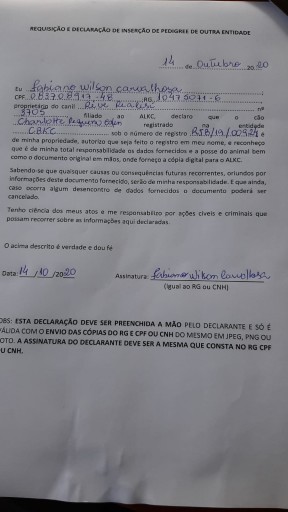 REQUISIÇÃO E DECLARAÇÃO DE INSERÇÃO DE PEDIGREE DE OUTRA ENTIDADE
14 de Outubro 20 20
Eu Fabiano Wilson Carvalhosa
CPF RG 10475071-6
proprietário do canil nº
3705 filiado ao ALKC, declaro que o cão
Charlotte registrado na entidade
CBKC sob o número de registro e
de minha propriedade, autorizo que seja feito o registro em meu nome, e reconheço
que é de minha total responsabilidade os dados fornecidos e a posse do animal bem
como o documento original em mãos, onde forneço a cópia digital para o ALKC.
Sabendo-se que quaisquer causas ou consequências futuras recorrentes, oriundos por
informações deste documento fornecido, serão de minha responsabilidade. E que ainda,
caso ocorra algum desencontro de dados fornecidos o documento poderá ser
cancelado.
Tenho ciência dos meus atos e me responsabilizo por ações cíveis e criminais que
possam recorrer sobre as informações aqui declaradas.
O acima descrito é verdade e dou fé
Data: 14/10/2020 Assinatura: Fabiano Wilson Carvalhosa
(igual ao RG ou CNH)
OBS: ESTA DECLARAÇÃO DEVE SER PREENCHIDA A MÃO PELO DECLARANTE E SÓ É
VÁLIDA COM O ENVIO DAS CÓPIAS DO RG E CPF OU CNH DO MESMO EM JPEG, PNG OU
FOTO. A ASSINATURA DO DECLARANTE DEVE SER A MESMA QUE CONSTA NO RG CPF
OU CNH.